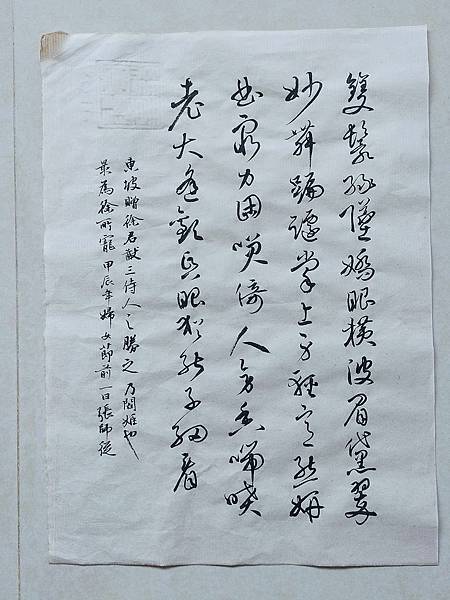 雙鬟綠墜嬌眼橫波眉黛翠
妙舞蹁躚掌上身輕意態妍
曲窮力困咲倚人旁香喘噴
老大逢歡昏眼猶能子細看
東坡贈徐君猷三侍人之勝之乃閻姬也
最為徐所寵 甲辰年婦女節前一日張師從